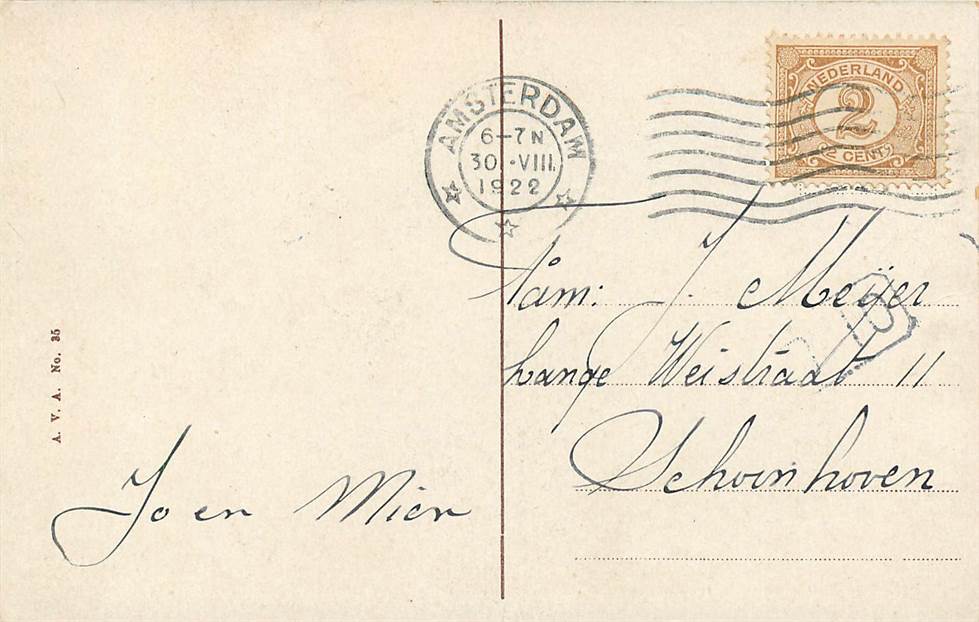 NEDERLAND
2
2 CENT
AMSTERDAM
6-7 N
30.-VIII.
1922
Fam: J. Meÿer
Lange Weistraat 11
Schoonhoven
B
Jo en Mien
A. V. A. No. 35